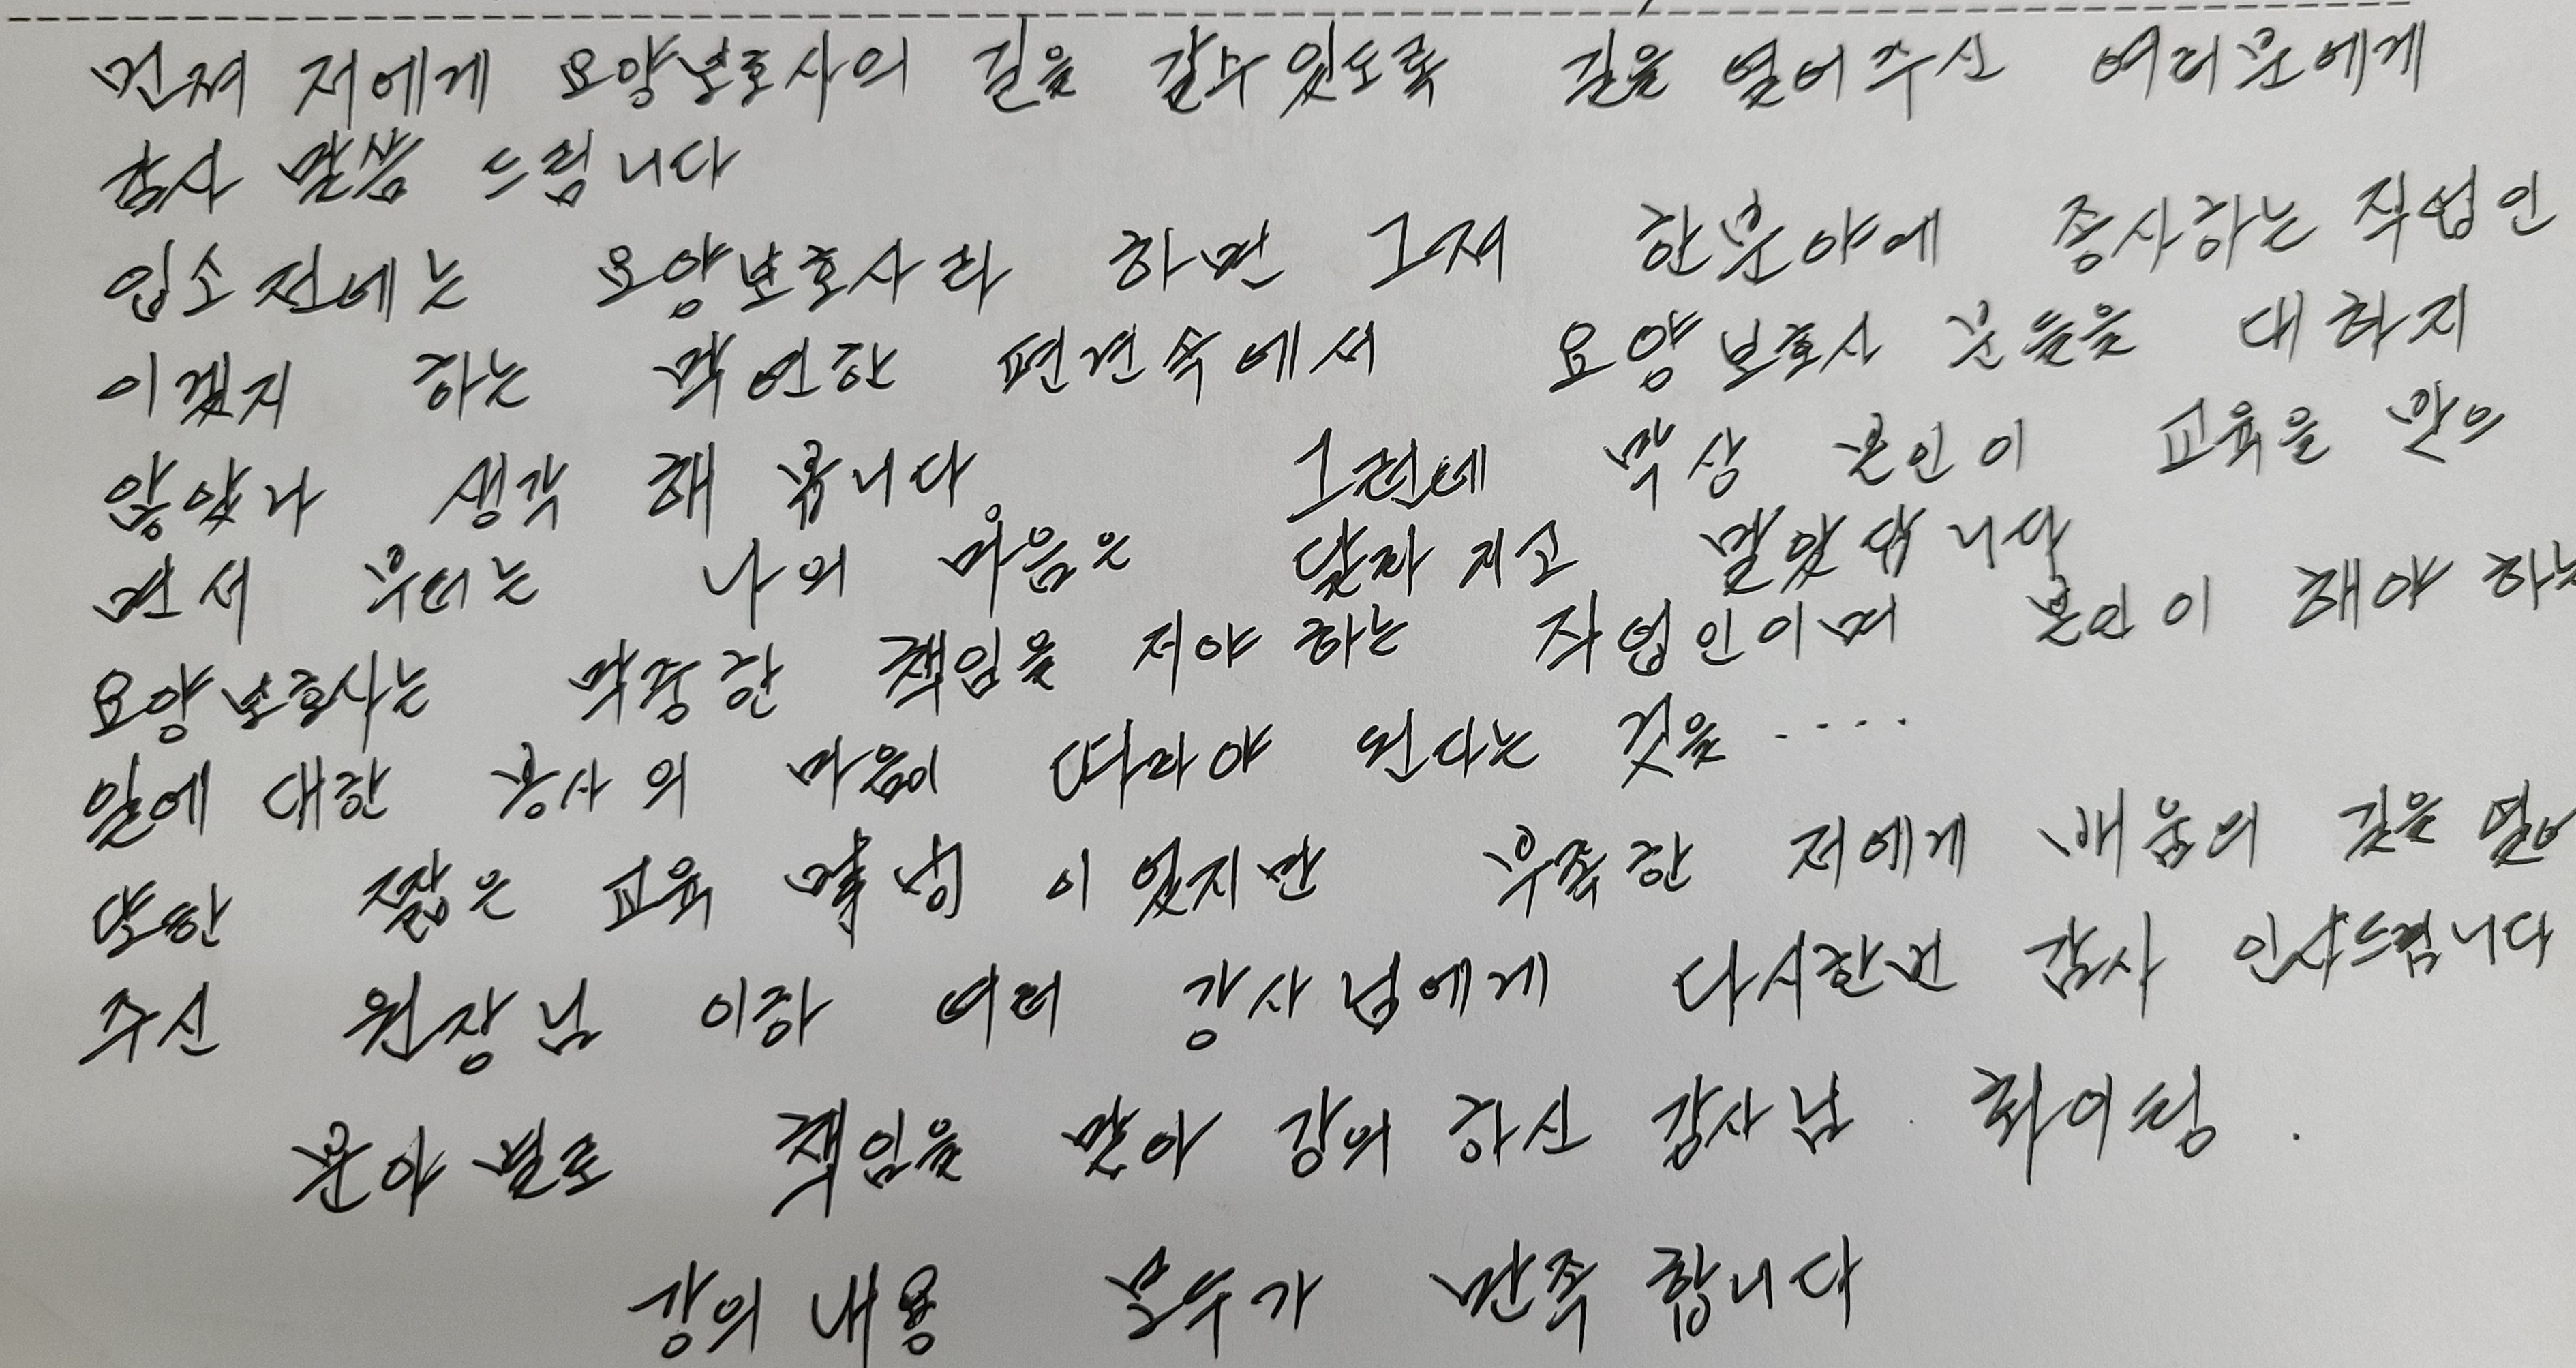 먼저 저에게 요양보호사의 길을 갈수 있도록 길을 열어주신 여러분에게
감사 말씀 드립니다
입소 전에는 요양보호사라 하면 그저 한분야에 종사하는 직업인
이겠지 하는 막연한 편견속에서 요양보호사 분들을 대하지
않았나 생각 해 봅니다. 그런데 막상 본인이 교육을 받으
면서 부터는 나의 마음은 달라지고 말았답니다
요양보호사는 막중한 책임을 저야 하는 직업인이며 본인이 해야 하는
일에 대한 봉사의 마음이 따라야 된다는 것을 ....
또한 짧은 교육 이였지만 부족한 저에게 배움의 길을 열어
주신 원장님 이하 여러 강사님에게 다시한번 감사 인사드립니다
분야별로 책임을 맡아 강의 하신 강사님 화이팅 .
강의 내용 모두가 만족 합니다